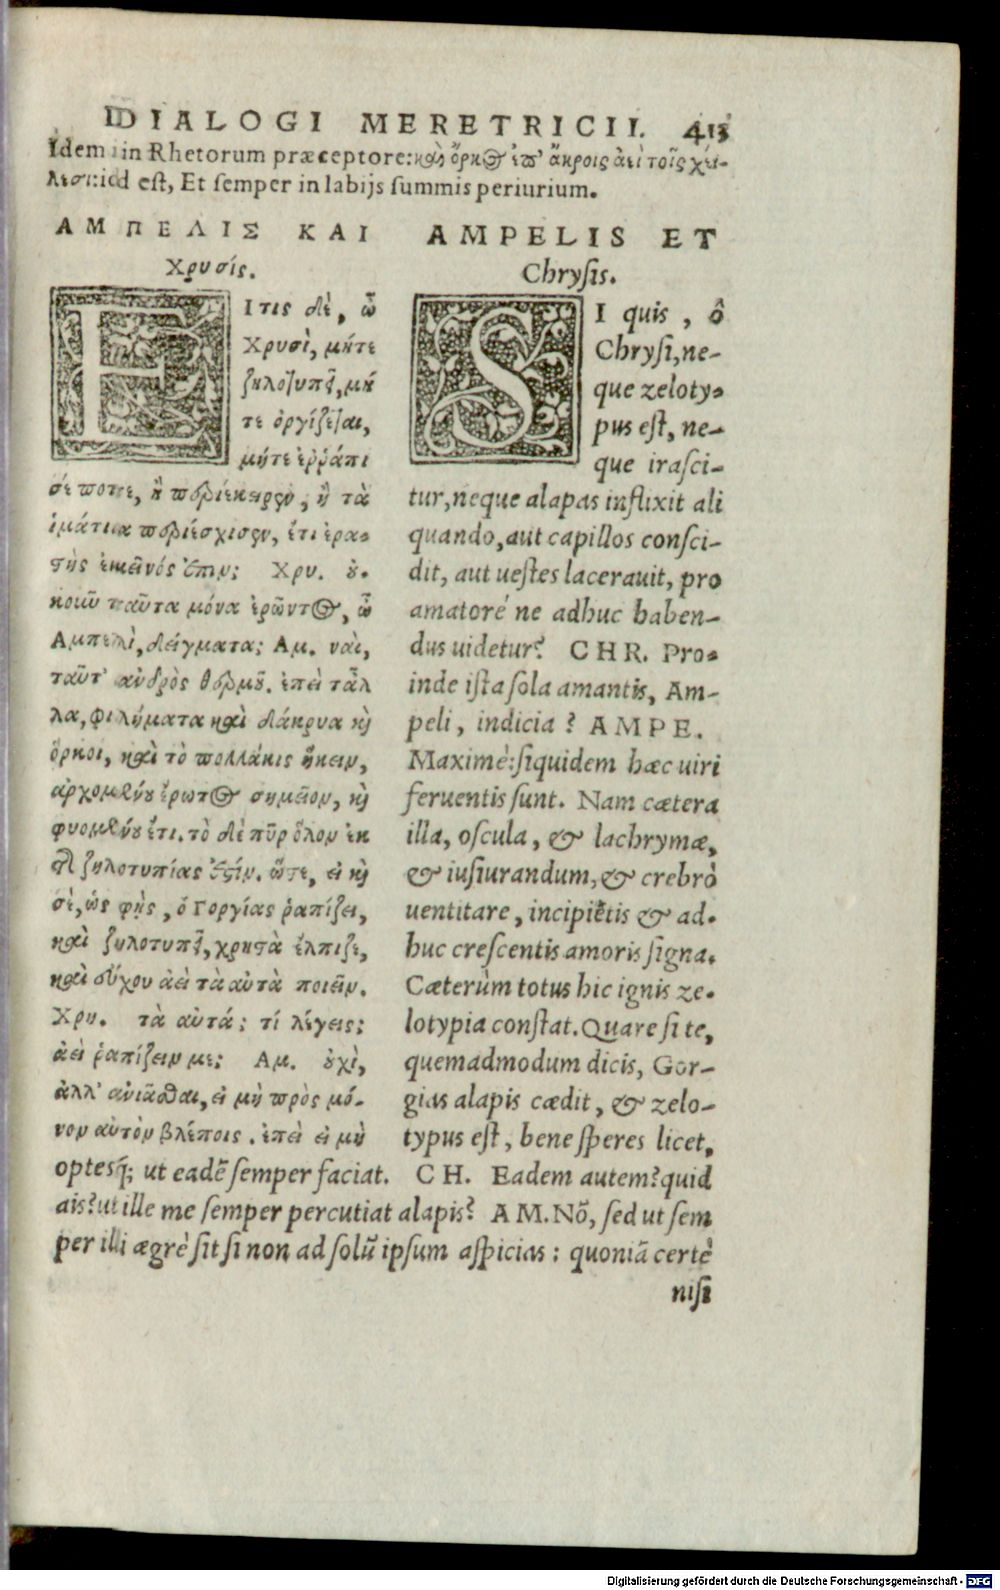 DIALOGI MERETRICII. 413
Idem in Rhetorum præceptore: καὶ ὅρκος ἐπ' ἄκροις ἀεὶ τοῖς χεί-
λεσι: id est, Et semper in labijs summis periurium.
ΑΜΠΕΛΙΣ ΚΑΙ
Χρυσίς.
ΕΙ τις δὲ, ὦ
Χρυσὶ, μήτε
ζηλοτυπεῖ, μή
τε ὀργίζεται,
μήτε ἐρράπι
σέ ποτε, ἢ περιέκειρεν, ἢ τὰ
ἱμάτια περιέσχισεν, ἔτι ἐρα-
στὴς ἐκεῖνός ἐστιν; Χρυ. οὐ-
κοῦν ταῦτα μόνα ἐρῶντος, ὦ
Αμπελὶ, δείγματα; Αμ. ναὶ,
ταῦτ' ἀνδρὸς θερμοῦ. ἐπεὶ τἆλ
λα, φιλήματα καὶ δάκρυα καὶ
ὅρκοι, καὶ τὸ πολλάκις ἥκειν,
ἀρχομένου ἔρωτος σημεῖον, καὶ
φυομένου ἔτι. τὸ δὲ πῦρ ὅλον ἐκ
τῆς ζηλοτυπίας ἐστίν. ὥστε, εἰ καὶ
σὲ, ὡς φῂς, ὁ Γοργίας ῥαπίζει,
καὶ ζηλοτυπεῖ, χρηστὰ ἔλπιζε,
καὶ εὔχου ἀεὶ τὰ αὐτὰ ποιεῖν.
Χρυ. τὰ αὐτά; τί λέγεις;
ἀεὶ ῥαπίζειν με; Αμ. οὐχὶ,
ἀλλ' ἀνιᾶσθαι, εἰ μὴ πρὸς μό-
νον αὐτὸν βλέποις. ἐπεὶ εἰ μὴ
AMPELIS ET
Chrysis.
SI quis, ô
Chrysi, ne-
que zeloty-
pus est, ne-
que irasci-
tur, neque alapas inflixit ali
quando, aut capillos consci-
dit, aut uestes lacerauit, pro
amatoré ne adhuc haben-
dus uidetur? CHR. Pro-
inde ista sola amantis, Am-
peli, indicia? AMPE.
Maximè: siquidem hæc uiri
feruentis sunt. Nam cætera
illa, oscula, & lachrymæ,
& iusiurandum, & crebrò
uentitare, incipiẽtis & ad-
huc crescentis amoris signa.
Cæterùm totus hic ignis ze-
lotypia constat. Quare si te,
quemadmodum dicis, Gor-
gias alapis cædit, & zelo-
typus est, bene speres licet,
optesq́; ut eadẽ semper faciat. CH. Eadem autem? quid
ais? ut ille me semper percutiat alapis? AM. Nõ, sed ut sem
per illi ægrè sit si non ad solũ ipsum aspicias: quoniã certè
nisi
Digitalisierung gefördert durch die Deutsche Forschungsgemeinschaft - DFG